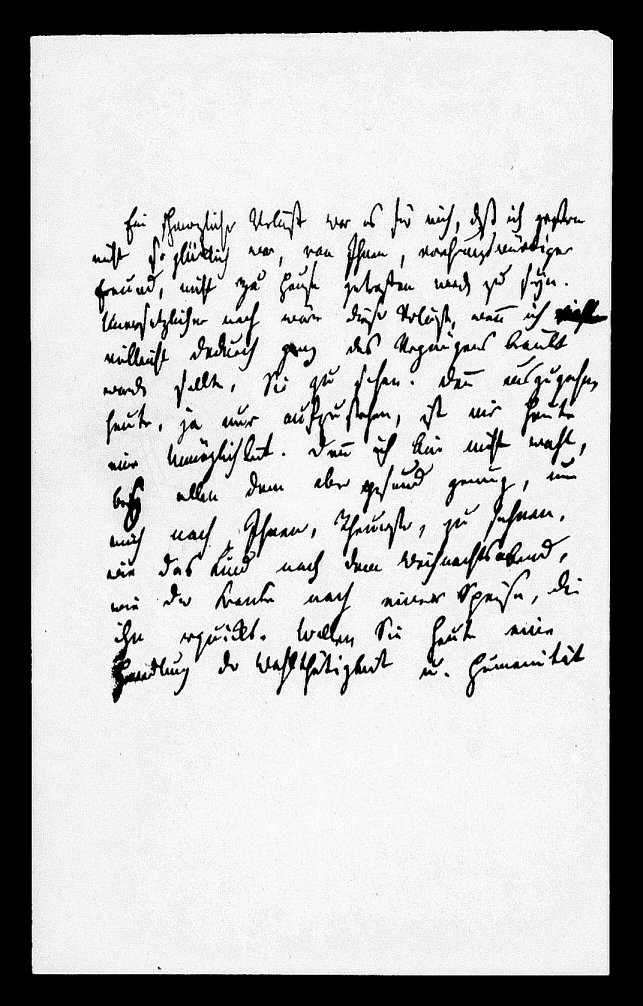 Ein schmerzlicher Verlust war es für mich, daß ich gestern
nicht so glücklich war, von Ihnen, verehrungswürdiger
Freund, nicht zu Hause getroffen worden zu seyn.
Unersetzlicher noch wäre dieser Verlust, wenn ich
vielleicht dadurch ganz des Vergnügens beraubt
werden sollte, Sie zu sehen. Denn auszugehen
heute, ja nur aufzustehen, ist mir heute
eine Unmöglichkeit. Denn ich bin nicht wohl,
bey allen dem aber gesund genug, um
mich nach Ihnen, Theurster, zu sehnen,
wie das Kind nach dem Weihnachtsabend,
wie der Kranke nach einer Speise, die
ihn erquickt. Wollen Sie heute eine
Handlung der Wohlthätigkeit u. Humanität